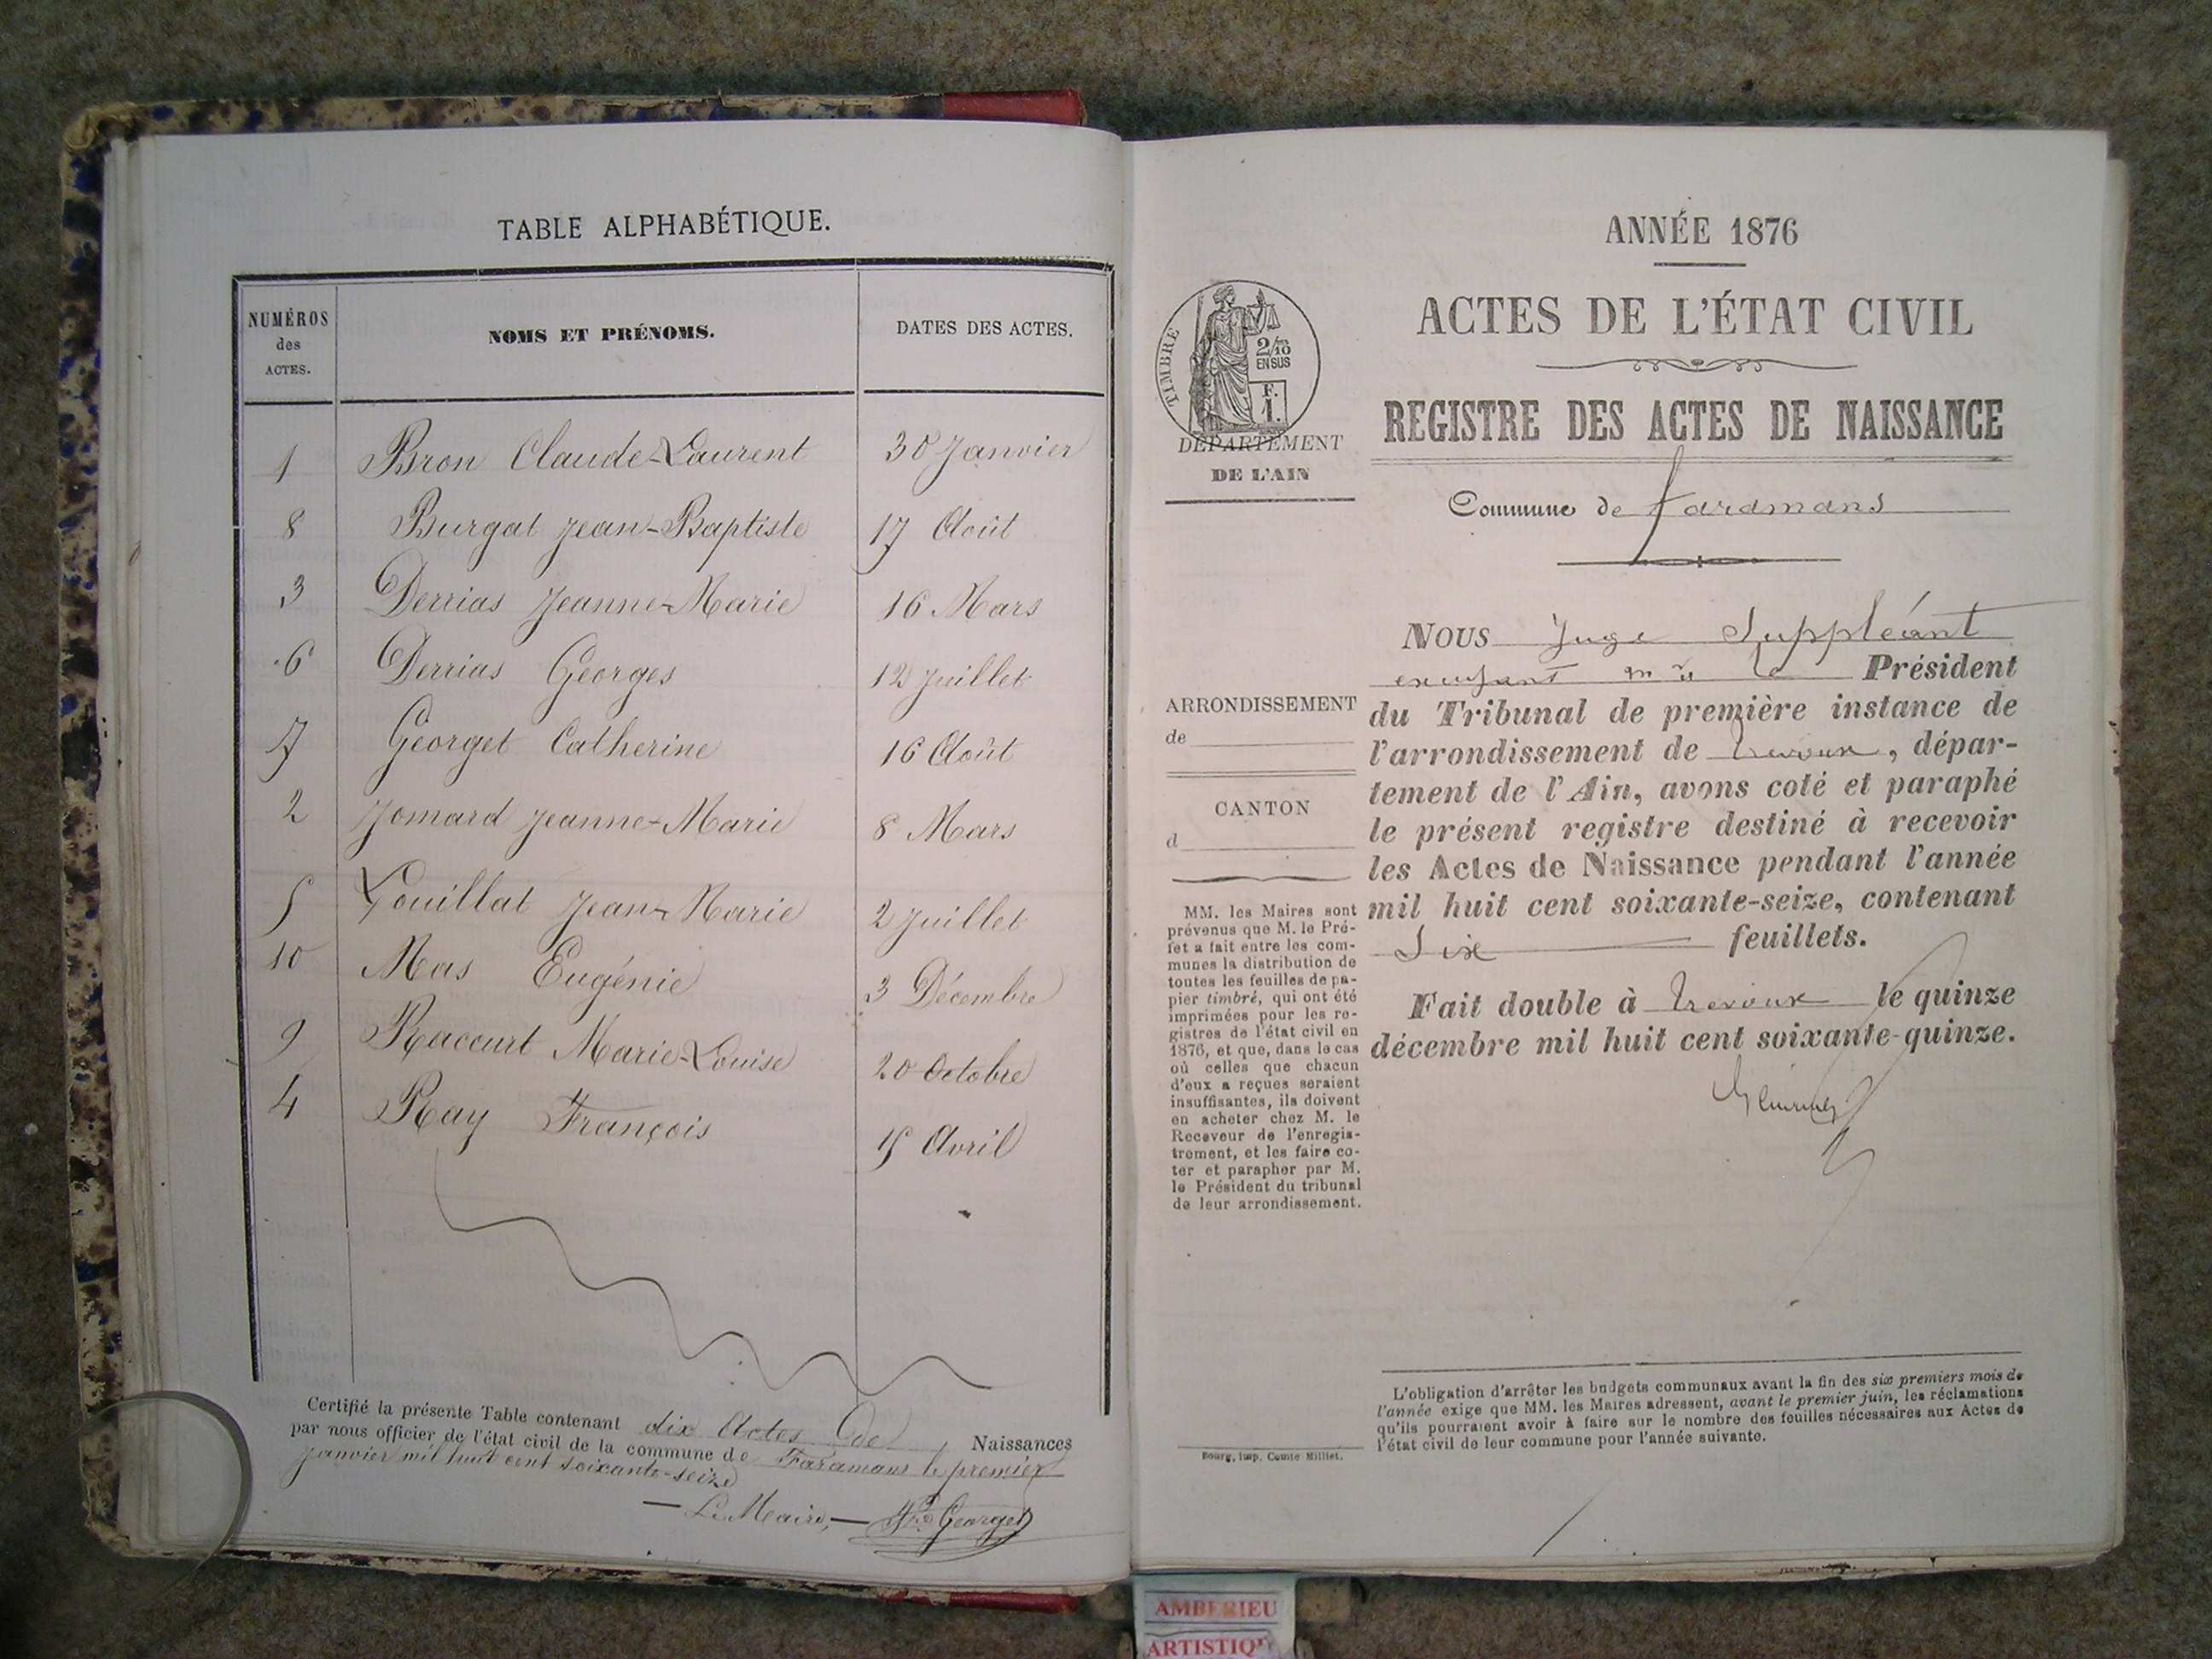 TABLE ALPHABÉTIQUE.
NUMÉROS des ACTES.
NOMS ET PRÉNOMS.
DATES DES ACTES.
1 Bron Claude-Laurent 30 Janvier
8 Burgat Jean-Baptiste 17 Août
3 Derrias Jeanne-Marie 16 Mars
6 Derrias Georges 12 Juillet
7 Georget Catherine 16 Août
2 Jomard Jeanne-Marie 8 Mars
5 Jean-Marie 2 Juillet
10 Mas Eugénie 3 Décembre
9 Raccurt Marie-Louise 20 Octobre
4 Ray François Avril
Certifié la présente Table contenant dix Actes de Naissances
par nous officier de l'état civil de la commune de Faramans le premier
Janvier mil huit cent soixante-seize
Le Maire, Georget
ANNÉE 1876
ACTES DE L'ÉTAT CIVIL
REGISTRE DES ACTES DE NAISSANCE
TIMBRE
2/10
EN SUS
F.
1.
DÉPARTEMENT
DE L'AIN
Commune de faramans
ARRONDISSEMENT
de
CANTON
d
MM. les Maires sont
prévenus que M. le Pré-
fet a fait entre les com-
munes la distribution de
toutes les feuilles de pa-
pier timbré, qui ont été
imprimées pour les re-
gistres de l'état civil en
1876, et que, dans le cas
où celles que chacun
d'eux a reçues seraient
insuffisantes, ils doivent
en acheter chez M. le
Receveur de l'enregis-
trement, et les faire co-
ter et parapher par M.
le Président du tribunal
de leur arrondissement.
NOUS Juge Suppléant
le Président
du Tribunal de première instance de
l'arrondissement de Trevoux, dépar-
tement de l'Ain, avons coté et paraphé
le présent registre destiné à recevoir
les Actes de Naissance pendant l'année
mil huit cent soixante-seize, contenant
Six feuillets.
Fait double à Trevoux le quinze
décembre mil huit cent soixante-quinze.
L'obligation d'arrêter les budgets communaux avant la fin des six premiers mois de
l'année exige que MM. les Maires adressent, avant le premier juin, les réclamations
qu'ils pourraient avoir à faire sur le nombre des feuilles nécessaires aux Actes de
l'état civil de leur commune pour l'année suivante.
Bourg, imp. Comte Milliet.
AMBERIEU
ARTISTIQ